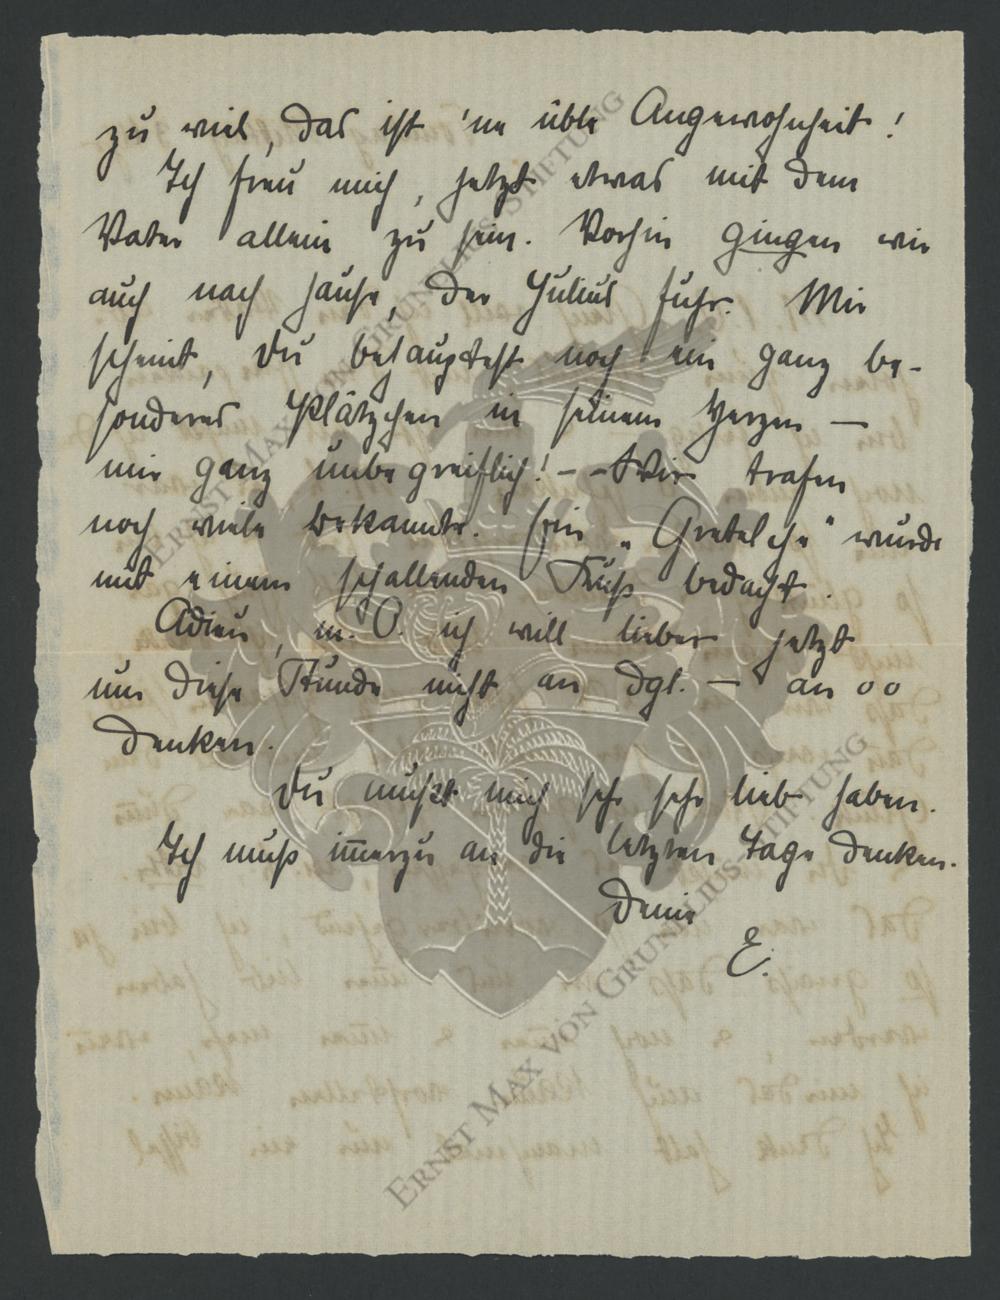 zu viel, das ist 'ne üble Angewohnheit!
Ich freu mich, jetzt etwas mit dem
Vater allein zu sein. Vorhin gingen wir
auch nach Hause, der Julius fuhr. Mir
scheint, Du behauptest noch ein ganz be-
sonderes Plätzchen in seinem Herzen —
mir ganz unbegreiflich! – – Wir trafen
noch viele Bekannte. Sein „Gretelche" wurde
mit einem schallenden Kuß bedacht.
Adieu, m. O. ich will lieber jetzt
um diese Stunde nicht an dgl. — an oo
denken.
Du mußt mich sehr sehr lieb haben.
Ich muß im̅erzu an die letzten Tage denken.
Deine
E.
ERNST MAX VON GRUNELIUS-STIFTUNG
ERNST MAX VON GRUNELIUS-STIFTUNG